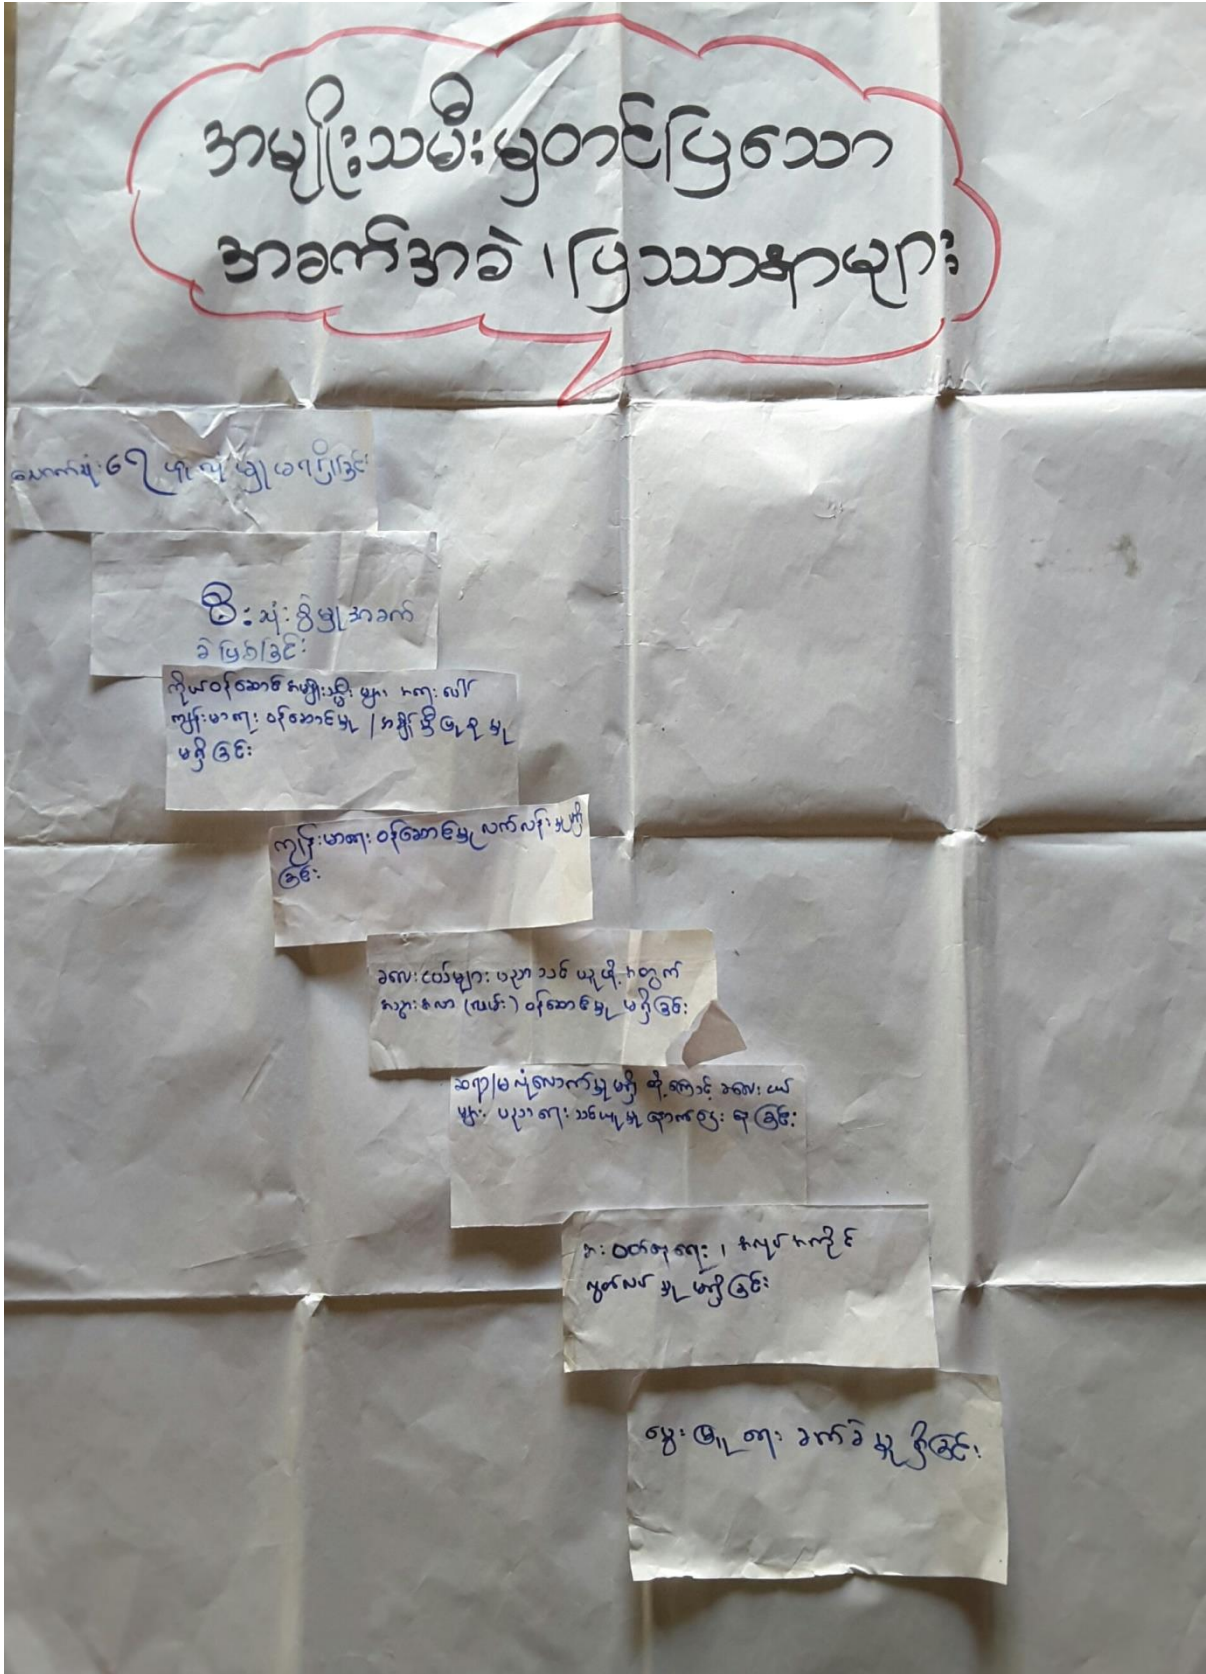 အမျိုးသမီးမှတင်ပြသော
အခက်အခဲ ၊ ပြဿနာများ
သောက်သုံးရေ လုံလောက်မှု မရှိခြင်း
မီးသုံးစွဲမှု အခက်
ခဲဖြစ်ခြင်း
ကိုယ်ဝန်ဆောင် အမျိုးသမီး များ အရေးပေါ်
ကျန်းမာရေး ဝန်ဆောင်မှု / အချိန်မှီ ပြုစု မှု
မရှိခြင်း
ကျန်းမာရေး ဝန်ဆောင်မှု လက်လှမ်းမမှီ
ခြင်း
ခလေးငယ်များ ပညာသင်ယူဖို့ အတွက်
အသွားအလာ (လမ်း) ဝန်ဆောင်မှု မရှိခြင်း
ဆရာ/မ လုံလောက်မှု မရှိ တို့ကြောင့် ခလေးငယ်
များ ပညာရေး သင်ယူမှု နောက်ကျ ခြင်း
စားဝတ်နေရေး ၊ အလုပ်အကိုင်
လွတ်လပ်မှု မရှိခြင်း
မွေးမြူရေး ခက်ခဲမှု ရှိခြင်း